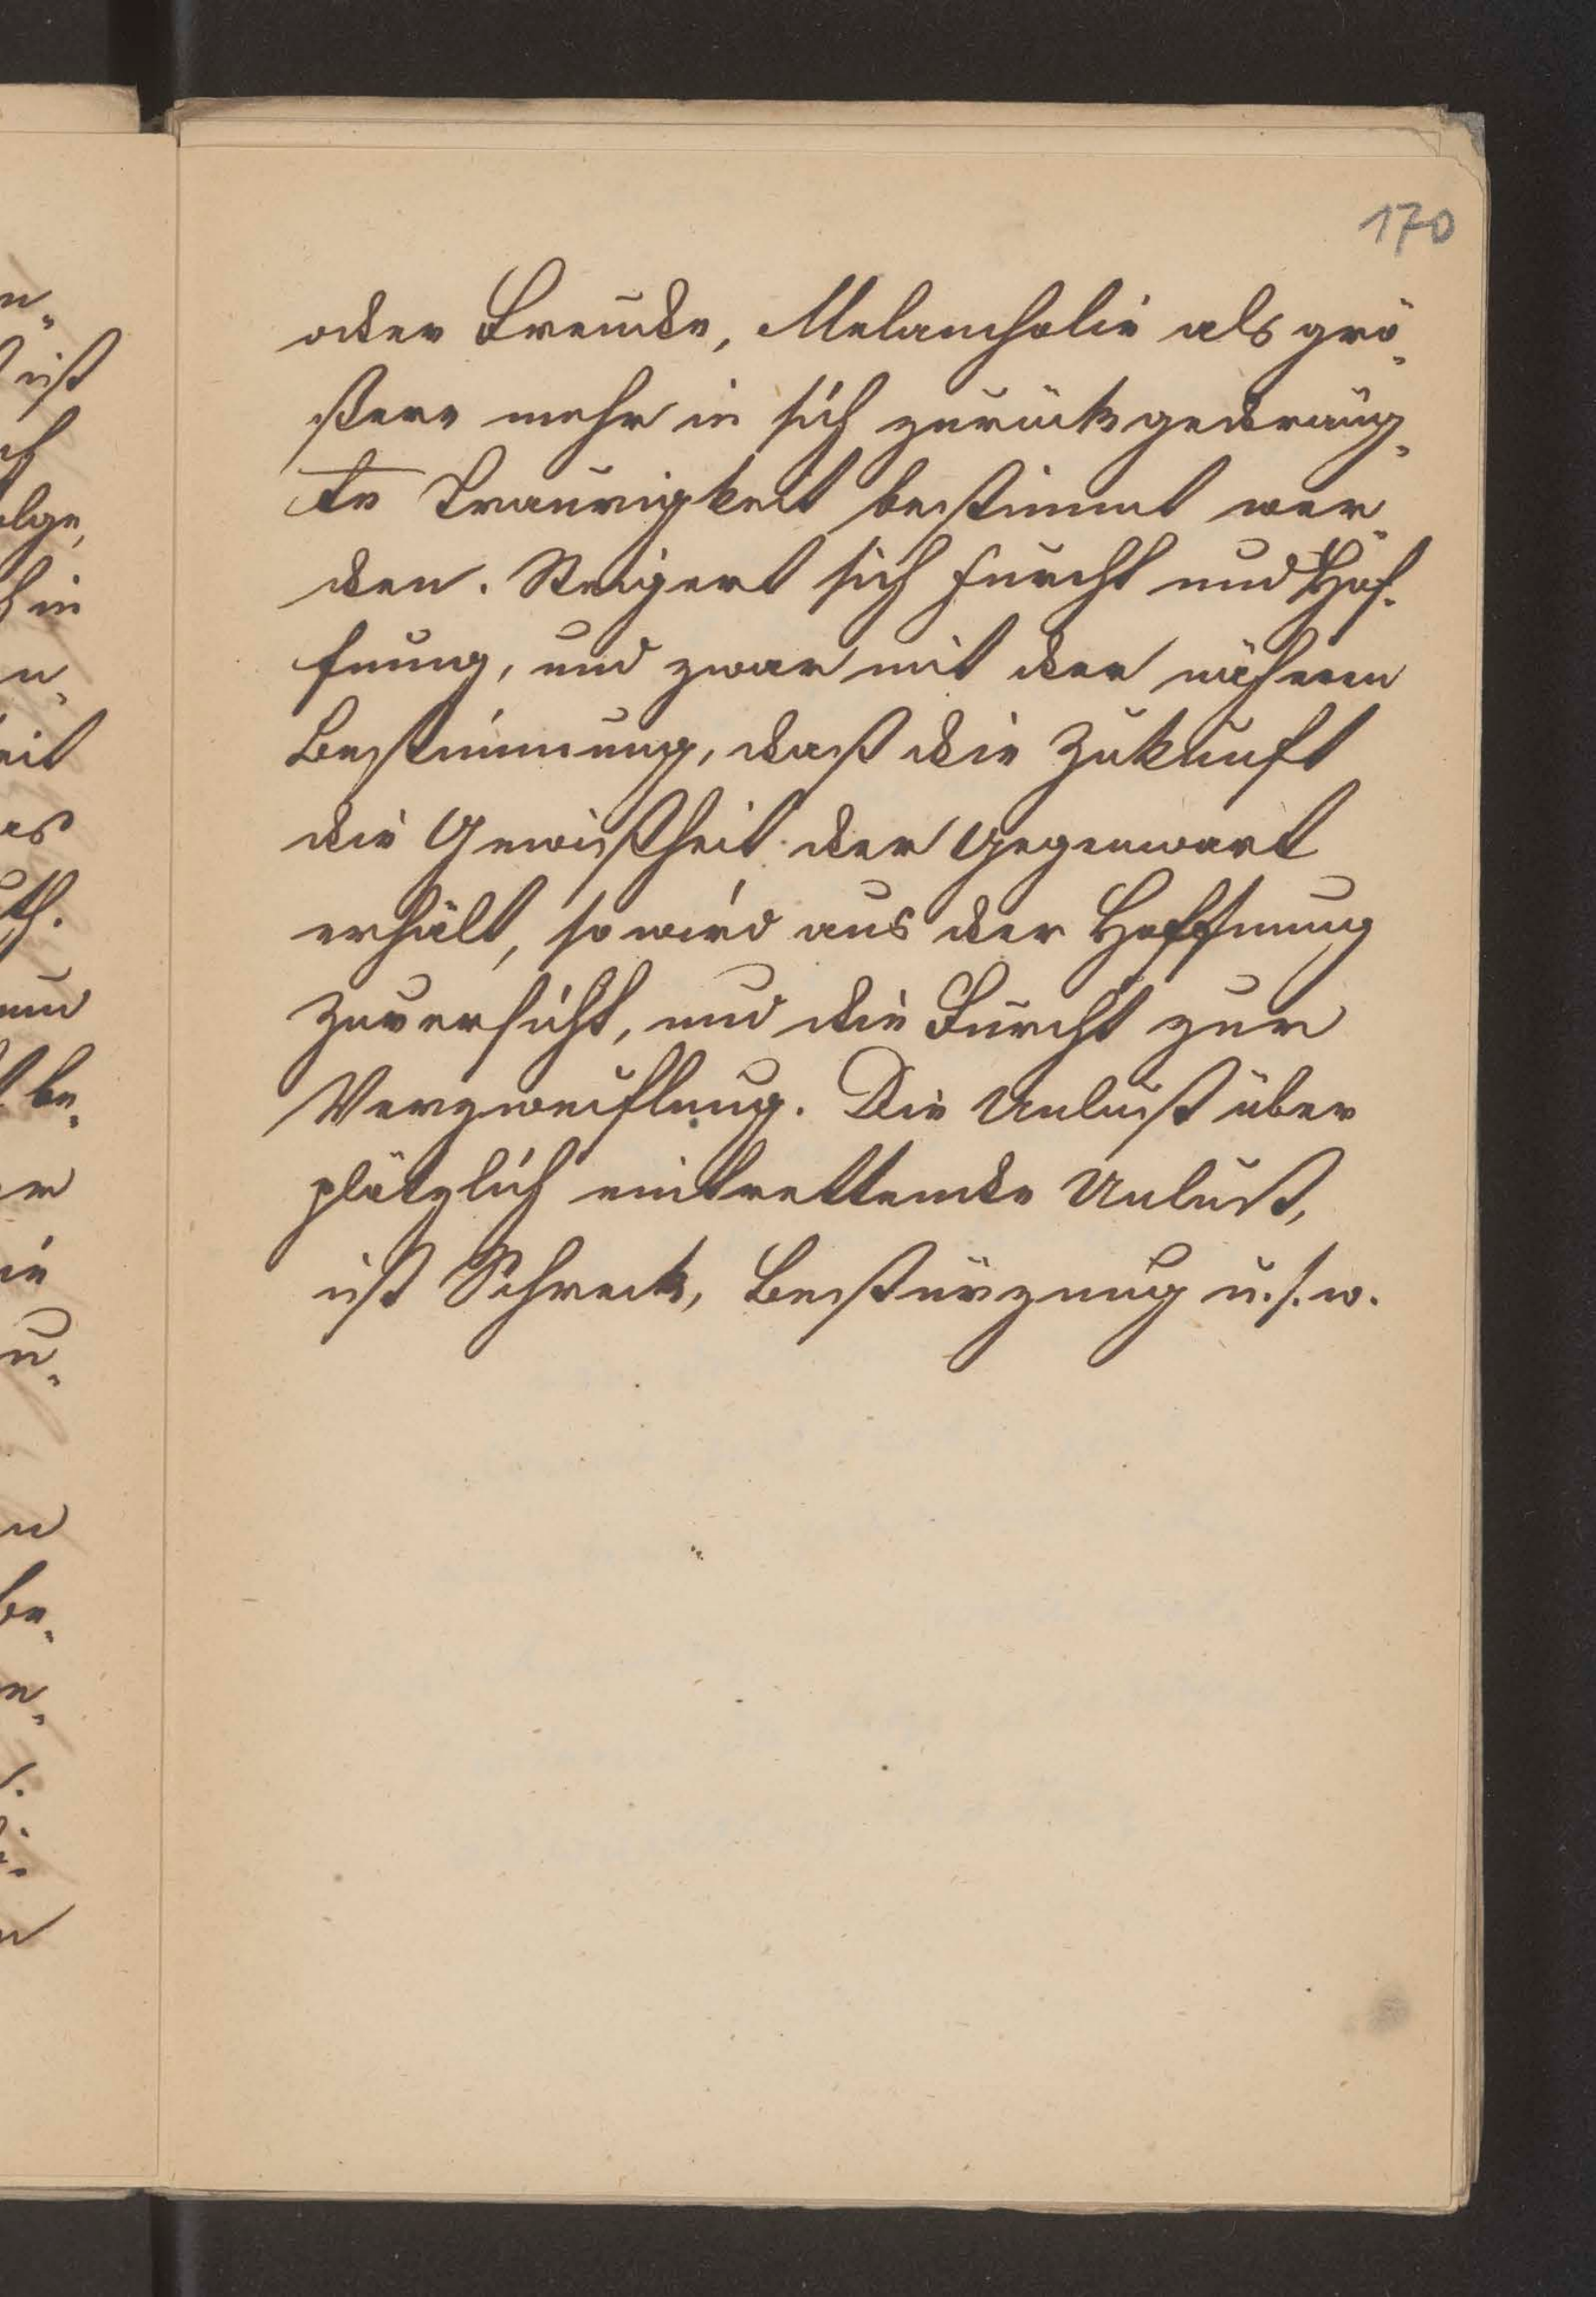 170
oder Freude, Melancholie als grö-
ßere mehr in sich zurückgedräng-
te Traurigkeit bestimmt wer-
den. Steigert sich Furcht und Hof-
fnung, und zwar mit der nähern
Bestimmung, daß die Zukunft
die Gewißheit der Gegenwart
erhält, so wird aus der Hoffnung
Zuversicht, und die Furcht zur
Verzweiflung. Die Unlust über
plötzlich eintrettende Unlust,
ist Schreck, Bestürzung u.s.w.